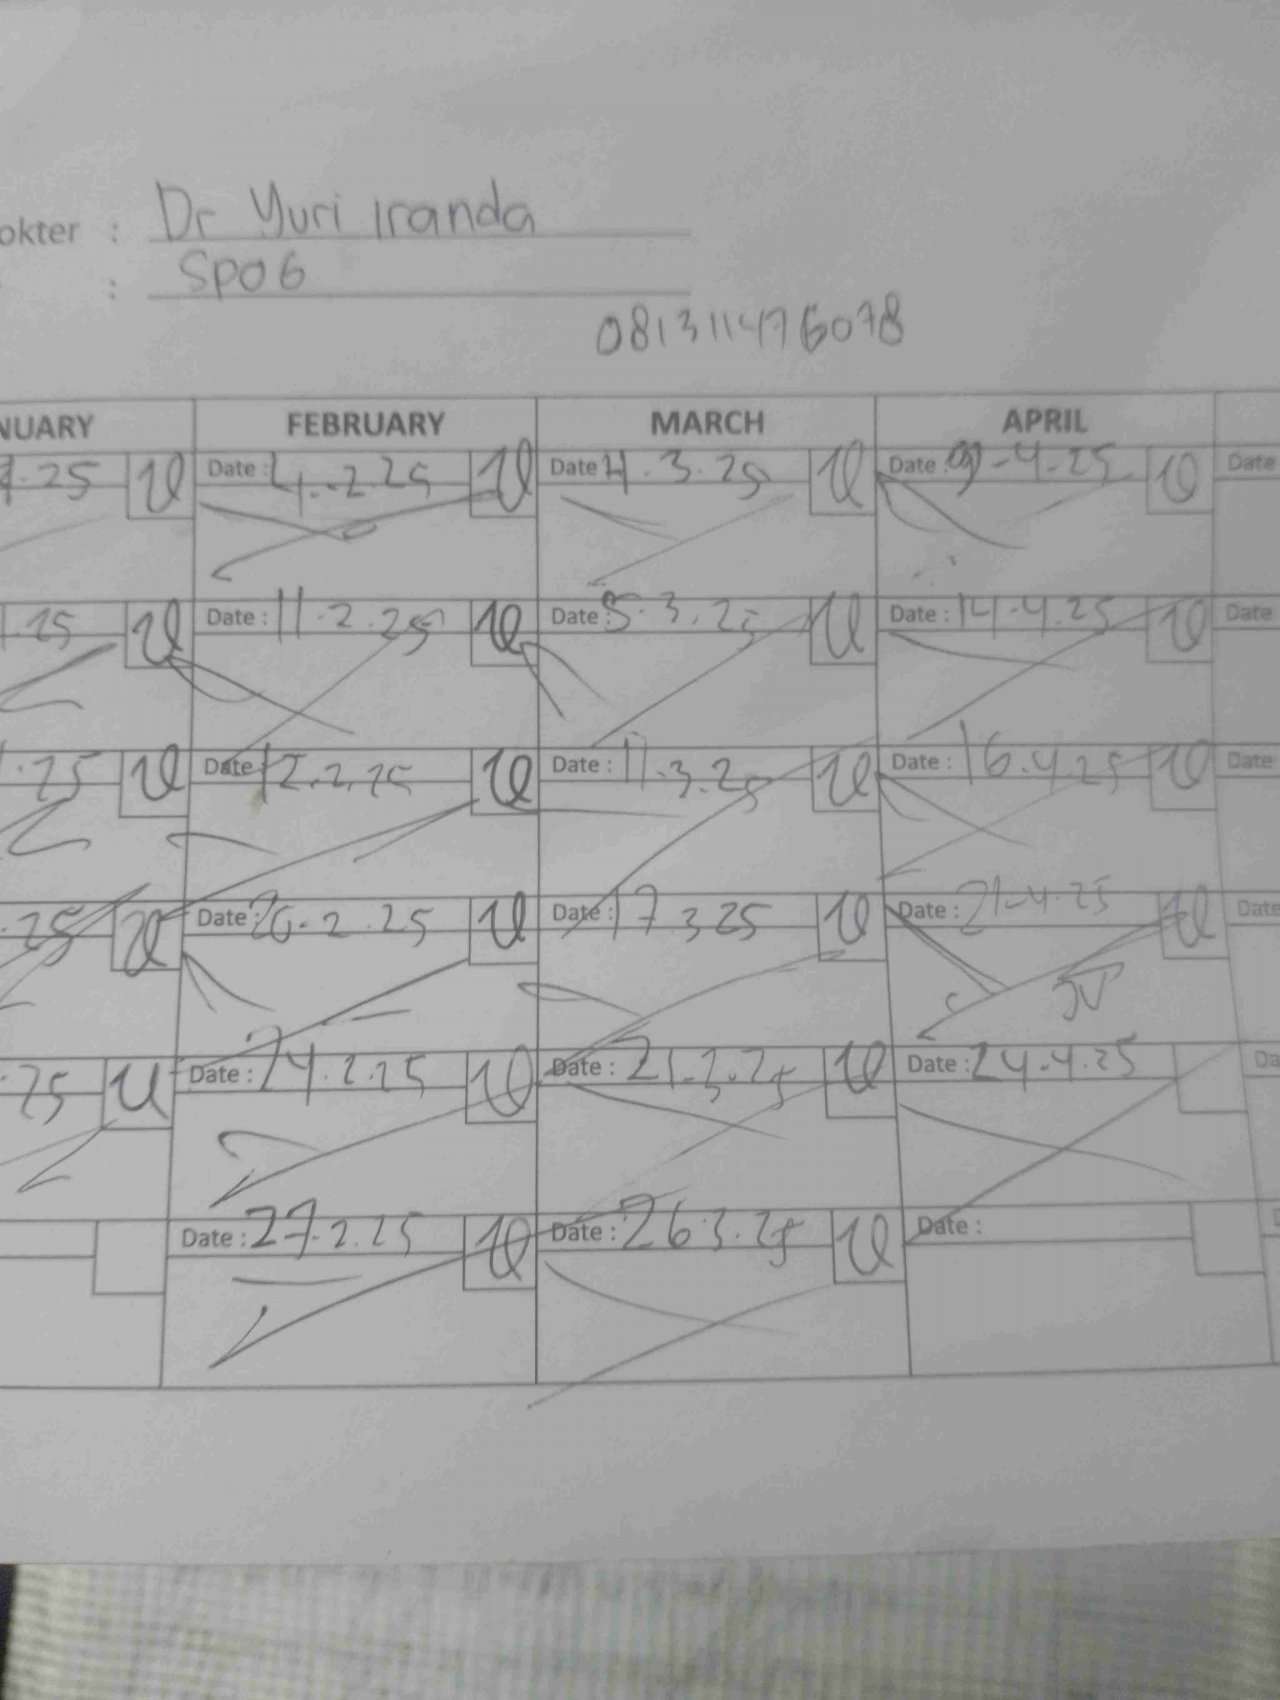 okter : Dr Yuri Iranda
: SPOG
081311476078
NUARY FEBRUARY MARCH APRIL
.25 Date : 4.2.25 Date 4.3.25 Date : 9-4-25 Date
.25 Date : 11.2.25 Date : 5.3.25 Date : 14-4.25 Date
.25 Date 12.2.25 Date : 11.3.25 Date : 16.4.25 Date
.25 Date : 20.2.25 Date : 17 3 25 Date : 21-4.25 Date
.25 Date : 24.2.25 Date : 21.3.25 Date : 24.4.25 Da
Date : 27.2.25 Date : 26 3.25 Date :